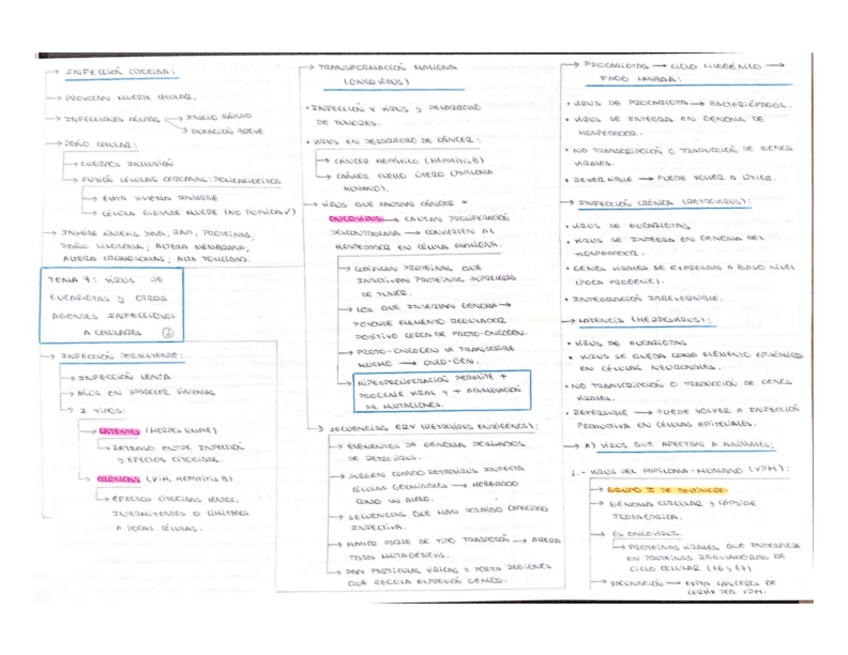 → INFECCIÓN CITOCIDA:
→ PROVOCAN MUERTE CELULAR.
→ INFECCIONES AGUDAS → INICIO RÁPIDO
→ DURACIÓN BREVE
→ DAÑO CELULAR:
→ CUERPOS INCLUSIÓN
→ FUSIÓN CÉLULAS CERCANAS: POLICARIOCITOS
→ EVITA SISTEMA INMUNE
→ CÉLULA GIGANTE MUERE (NO DUPLICA V)
→ INHIBE SÍNTESIS DNA, RNA, PROTEÍNAS;
DAÑO LISOSOMA; ALTERA MEMBRANA;
ALTERA CROMOSOMAS; ALTA TOXICIDAD.
TEMA 7: VIRUS DE
EUCARIOTAS Y OTROS
AGENTES INFECCIOSOS
ACELULARES ①
→ INFECCIÓN PERSISTENTE:
→ INFECCIÓN LENTA
→ AÑOS EN APARECER SÍNTOMAS
→ 2 TIPOS:
→ LATENTES (HERPES SIMPLE)
→ RETRASO ENTRE INFECCIÓN
Y EFECTOS CITOCIDAS.
→ CRÓNICAS (VIH, HEPATITIS B)
→ EFECTOS CITOCIDAS LEVES,
INTERMITENTES O LIMITADOS
A POCAS CÉLULAS.
→ TRANSFORMACIÓN MALIGNA
(ONCOVIRUS)
• INFECCIÓN X VIRUS Y DESARROLLO
DE TUMORES.
• VIRUS EN DESARROLLO DE CÁNCER:
→ CÁNCER HEPÁTICO (HEPATITIS B)
→ CÁNCER CUELLO ÚTERO (PAPILOMA
HUMANO).
→ VIRUS QUE CAUSAN CÁNCER =
ONCOVIRUS → CAUSAN PROLIFERACIÓN
DESCONTROLADA → CONVIERTEN AL
HOSPEDADOR EN CÉLULA MALIGNA.
→ CODIFICAN PROTEÍNAS QUE
INACTIVAN PROTEÍNAS SUPRESORAS
DE TUMOR.
→ LOS QUE INTEGRAN GENOMA →
POTENTE ELEMENTO REGULADOR
POSITIVO CERCA DE PROTO-ONCOGEN.
→ PROTO-ONCOGEN SE TRANSCRIBE
MUCHO → ONCO-GEN.
→ HIPERPROLIFERACIÓN PERMITE +
PROGENIE VIRAL Y + ACUMULACIÓN
DE MUTACIONES.
→ SECUENCIAS ERV (RETROVIRUS ENDÓGENOS):
→ ELEMENTOS DE GENOMA DERIVADOS
DE RETROVIRUS.
→ SURGEN CUANDO RETROVIRUS INFECTA
CÉLULAS GERMINALES → HEREDADO
COMO UN ALELO.
→ SECUENCIAS QUE HAN PERDIDO CAPACIDAD
INFECTIVA.
→ MAYOR PARTE DE TIPO TRANSPOSÓN →
TASA MUTAGÉNESIS.
→ DAN PARTÍCULAS VÍRICAS Y PORTA REGIONES
QUE REGULA EXPRESIÓN GÉNICA.
→ PROCARIOTAS → CICLO LISOGÉNICO →
FAGO LAMBDA:
• VIRUS DE PROCARIOTA → BACTERIÓFAGOS.
• VIRUS SE INTEGRA EN GENOMA DE
HOSPEDADOR.
• NO TRANSCRIPCIÓN O TRADUCCIÓN DE GENES
VIRALES.
• REVERSIBLE → PUEDE VOLVER A LÍTICA.
→ INFECCIÓN CRÓNICA (RETROVIRUS):
• VIRUS DE EUCARIOTAS
• VIRUS SE INTEGRA EN GENOMA DEL
HOSPEDADOR.
• GENES VIRALES SE EXPRESAN A BAJO NIVEL
(POCA PROGENIE).
• INTEGRACIÓN IRREVERSIBLE.
→ LATENCIA (HERPESVIRUS):
• VIRUS DE EUCARIOTAS
• VIRUS SE QUEDA COMO ELEMENTO EPISÓMICO
EN CÉLULAS NEURONALES.
• NO TRANSCRIPCIÓN O TRADUCCIÓN DE GENES
VIRALES.
• REVERSIBLE → PUEDE VOLVER A INFECCIÓN
PRODUCTIVA EN CÉLULAS EPITELIALES.
→ A) VIRUS QUE AFECTAN A ANIMALES:
1.- VIRUS DEL PAPILOMA-HUMANO (VPH):
→ GRUPO I DE BALTIMORE
→ GENOMA CIRCULAR Y CÁPSIDE
ICOSAÉDRICA.
→ ES ONCOVIRUS.
→ PROTEÍNAS VIRALES QUE INTERFIERE
EN PROTEÍNAS REGULADORAS DE
CICLO CELULAR (E6 Y E7)
→ VACUNACIÓN → EVITA CÁNCERES DE
CÉRVIX POR VPH.